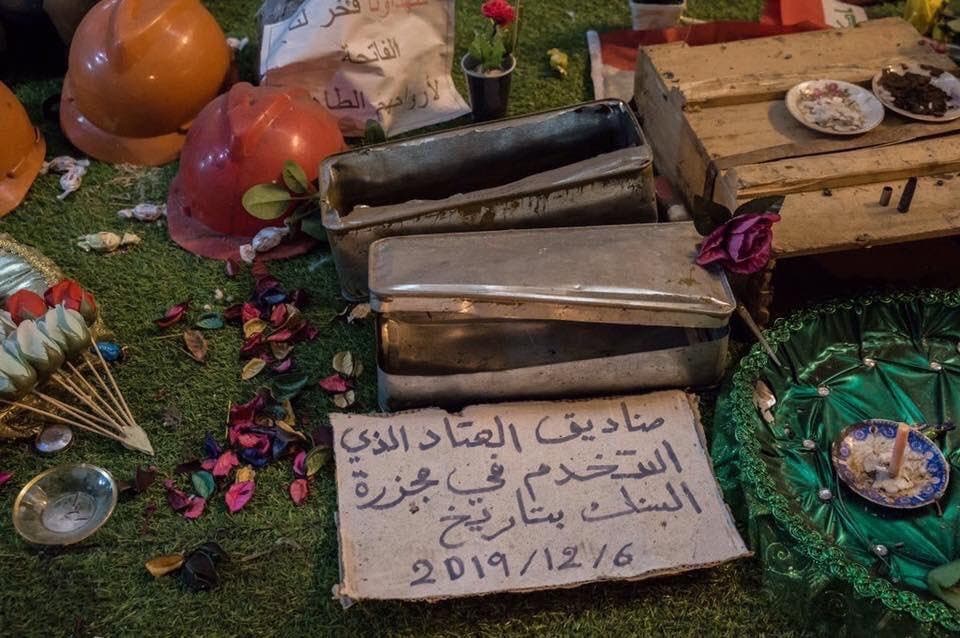 فخر
الفاتحة
لأرواحهم
صناديق العتاد الذي
استخدم في مجزرة
السنك بتاريخ
2019/12/6